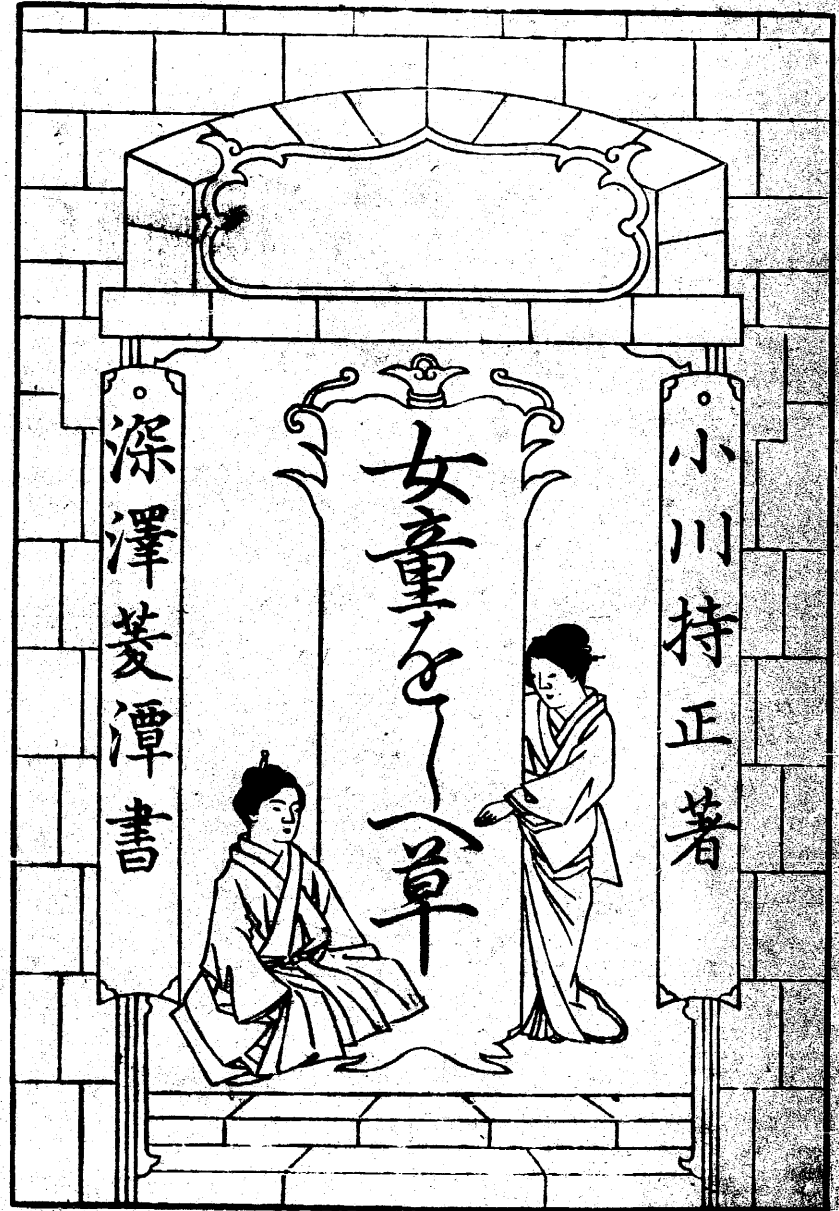 小川持正著
女童をしへ草
深澤菱潭書